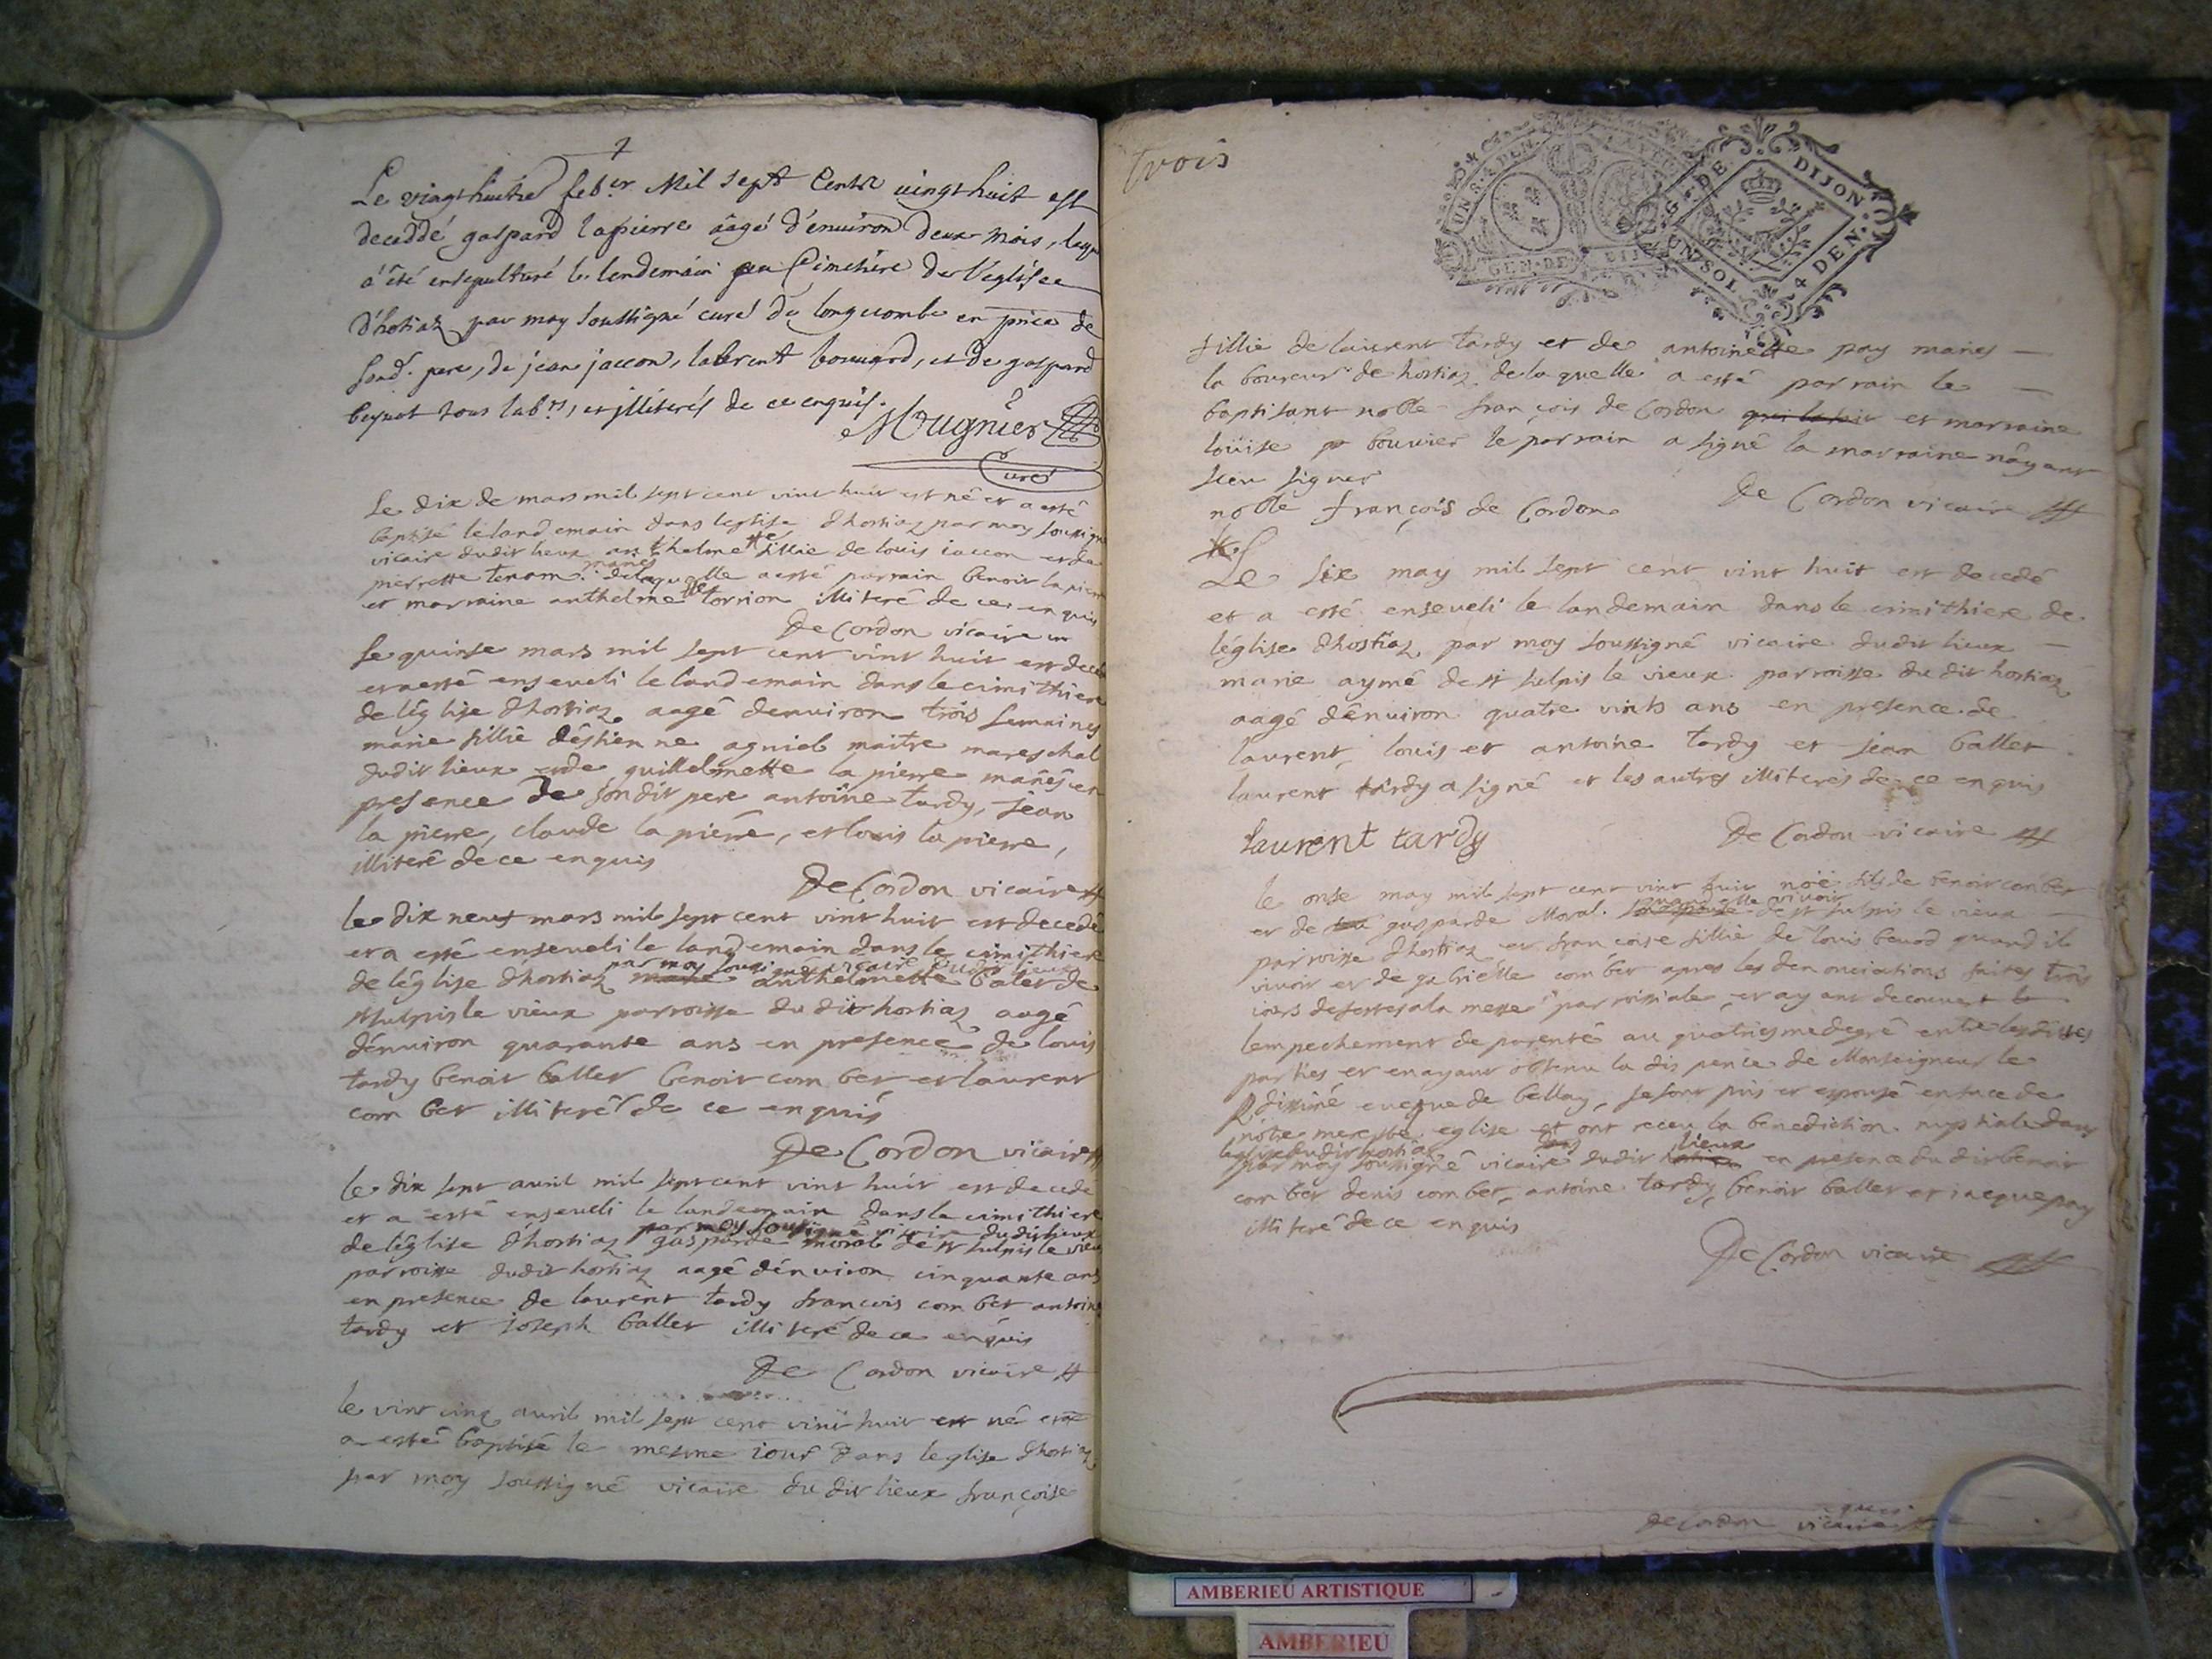 Le vingthuitie feb.er Mil Sept Cents vingt huit est
deceddé gaspard lapierre ââgé d'énuiron deux mois, lequ
á été ensepulturé le lendemain au Cimetiére de L'églisee
d'hotiaz par moy Soussigné curé de longecombe en pnce de
sond. pere, de jean jaccon, laurent bouuard, et de gaspard
beynot tous lab.rs, et jlliterés de ce enquis.
MUgnier
Curé
Le dix de mars mil sept cent vint huit est né et a esté
baptisé le landemain dans leglise d'hostiaz par moy soussigné
vicaire dudit lieux anthelmette fillie de louis iaccon et de
pierrette tenam mariés delaquelle a esté parrain benoit la pierre
et marraine anthelmette torrion illiteré de ce enquis
De Cordon vicaire
Le quinse mars mil sept cent vint huit est decedé
et a esté enseueli le landemain dans le cimithiere
de léglise d'hostiaz aagé denuiron trois semaines
marie fillie d'éstienne agniel maitre mareschal
dudit lieux et de guillelmette la pierre mariés en
presence de son dit pere antoine tardy, jean
la pierre, claude la pierre, et louis la pierre,
illiteré de ce enquis
De Cordon vicaire
le dix neuf mars mil sept cent vint huit est decedé
et a esté enseueli le landemain dans le cimithiere
par moy sousigné vicaire dudit lieux
de léglise d'hostiaz anthelmette balet de
st sulpis le vieux parroisse du dit hostiaz aagé
dénuiron quarante ans en presence de louis
tardy benoit ballet benoit combet et laurent
combet illiteré de ce enquis
De Cordon vicaire
le dix sept auril mil sept cent vint huit est decedé
et a esté enseueli le landemain dans le cimithiere
par moy sousigné vicaire dudit lieux
de léglise d'hostiaz gasparde moral de st sulpis le vieux
parroisse dudit hostiaz aagé dénuiron cinquante ans
en presence de laurent tardy francois combet antoine
tardy et ioseph ballet illiteré de ce enquis
De Cordon vicaire
le vint cinq auril mil sept cent vint huit est né et
a esté baptisé le mesme iour dans leglise d'hostiaz
par moy soussigné vicaire du dit lieux françoise
trois
G. DE DIJON
UN SOL 4 DEN.
GEN. DE DIJ
fillie de laurent tardy et de antoinette pay mariés
laboureur de hostiaz de laquelle a esté parrain le
baptisant noble françois de Cordon qui la fait et marraine
loüise bouvier le parrain a signé la marraine n'ayant
sceu signer
noble françois de Cordon De Cordon vicaire
Le six may mil sept cent vint huit est decedé
et a esté enseueli le landemain dans le cimithiere de
léglise d'hostiaz par moy soussigné vicaire dudit lieux
marie aymé de st sulpis le vieux parroisse du dit hostiaz
aagé dénuiron quatre vints ans en presence de
laurent, louis et antoine tardy et jean ballet
laurent tardy a signé et les autres illiterés de ce enquis
laurent tardy De Cordon vicaire
le onse may mil sept cent vint huit noé fils de benoit combet
quand elle viuoit
et de gasparde Moral de st sulpis le vieux
parroisse d'hostiaz et francoise fillie de louis beuod quand il
viuoit et de gabriélle combet apres les denonciations faites trois
iours de festes a la messe parroissiale et ayant decouuert
lempechement de parenté au quatriesme degré entre lesdittes
parties et en ayant obtenu la dispence de Monseigneur le
euesque de bellay, se sont pris et espousé en face de
nôtre mere ste eglise et ont receu la benediction nuptiale dans
leglise dudit hostiaz
par moy soussigné vicaire dudit lieux en presence du dit benoit
combet denis combet, antoine tardy, benoit ballet et iacque pay
illiteré de ce enquis
De Cordon vicaire
De Cordon vicaire
AMBERIEU ARTISTIQUE
AMBERIEU